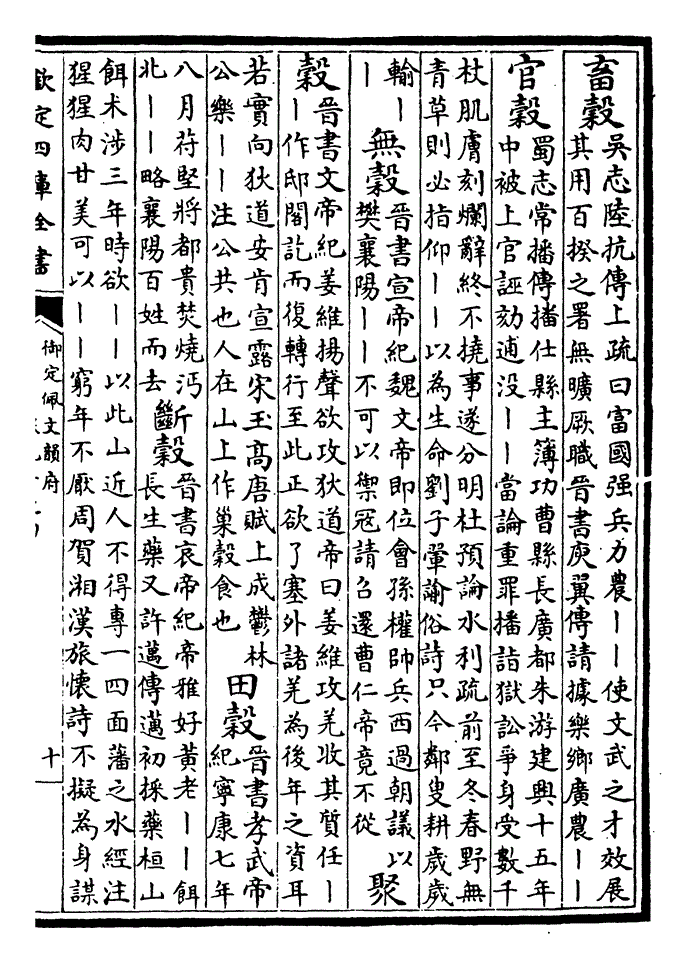 畜穀
吳志陸抗傳上疏曰富國强兵力農丨丨使文武之才效展
其用百揆之署無曠厥職晉書庾翼傳請據樂鄉廣農丨丨
官穀
蜀志常播傳播仕縣主簿功曹縣長廣都朱游建興十五年
中被上官誣劾逋沒丨丨當論重罪播詣獄訟爭身受數千
杖肌膚刻爛辭終不撓事遂分明杜預論水利疏前至冬春野無
青草則必指仰丨丨以為生命劉子翬諭俗詩只今鄰叟耕歲歲
輸丨
丨
無穀
晉書宣帝紀魏文帝即位會孫權帥兵西過朝議以
樊襄陽丨丨不可以禦寇請召還曹仁帝竟不從
聚
穀
晉書文帝紀姜維揚聲欲攻狄道帝曰姜維攻羌收其質任丨
丨作邸閣訖而復轉行至此正欲了塞外諸羌為後年之資耳
若實向狄道安肯宣露宋玉高唐賦上成鬱林
公樂丨丨注公共也人在山上作巢穀食也
田穀
晉書孝武帝
紀寧康七年
八月苻堅將都貴焚燒沔
北丨丨略襄陽百姓而去
斷穀
晉書哀帝紀帝雅好黃老丨丨餌
長生藥又許邁傳邁初採藥桓山
餌术涉三年時欲丨丨以此山近人不得專一四面藩之水經注
猩猩肉甘美可以丨丨窮年不厭周賀湘漢旅懷詩不擬為身謀
欽定四庫全書
御定佩文韻府
十